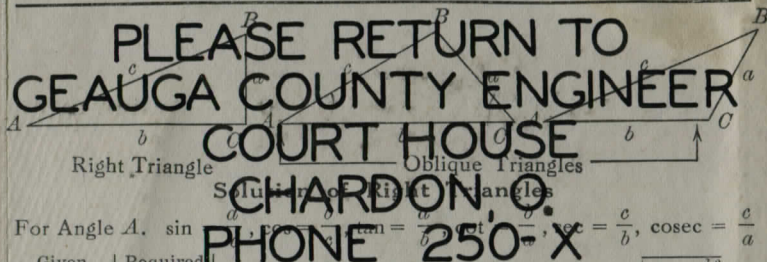 PLEASE RETURN TO
GEAUGA COUNTY ENGINEER
COURT HOUSE
CHARDON, O.
PHONE 250-X
B B B
c a c a c a
A b C A b C A b C
Right Triangle Oblique Triangles
Solution of Right Triangles
For Angle A. sin = a/b, sec = c/b, cosec = c/a
Given Required